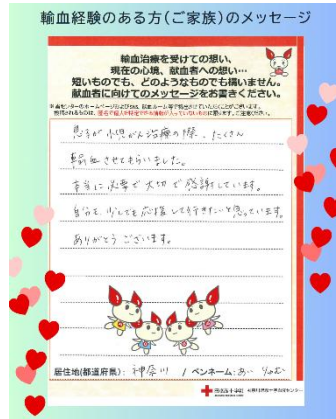 輸血経験のある方(ご家族)のメッセージ
輸血治療を受けての想い、
現在の心境、献血者への想い…
短いものでも、どのようなものでも構いません。
献血者に向けてのメッセージをお書きください。
息子が小児がん治療の際、たくさん
輸血させてもらいました。
本当に必要で大切で感謝しています。
自分も、少しでも応援して行きたいと思っています。
ありがとうございます。
居住地(都道府県): 神奈川 / ペンネーム: あい
日本赤十字社